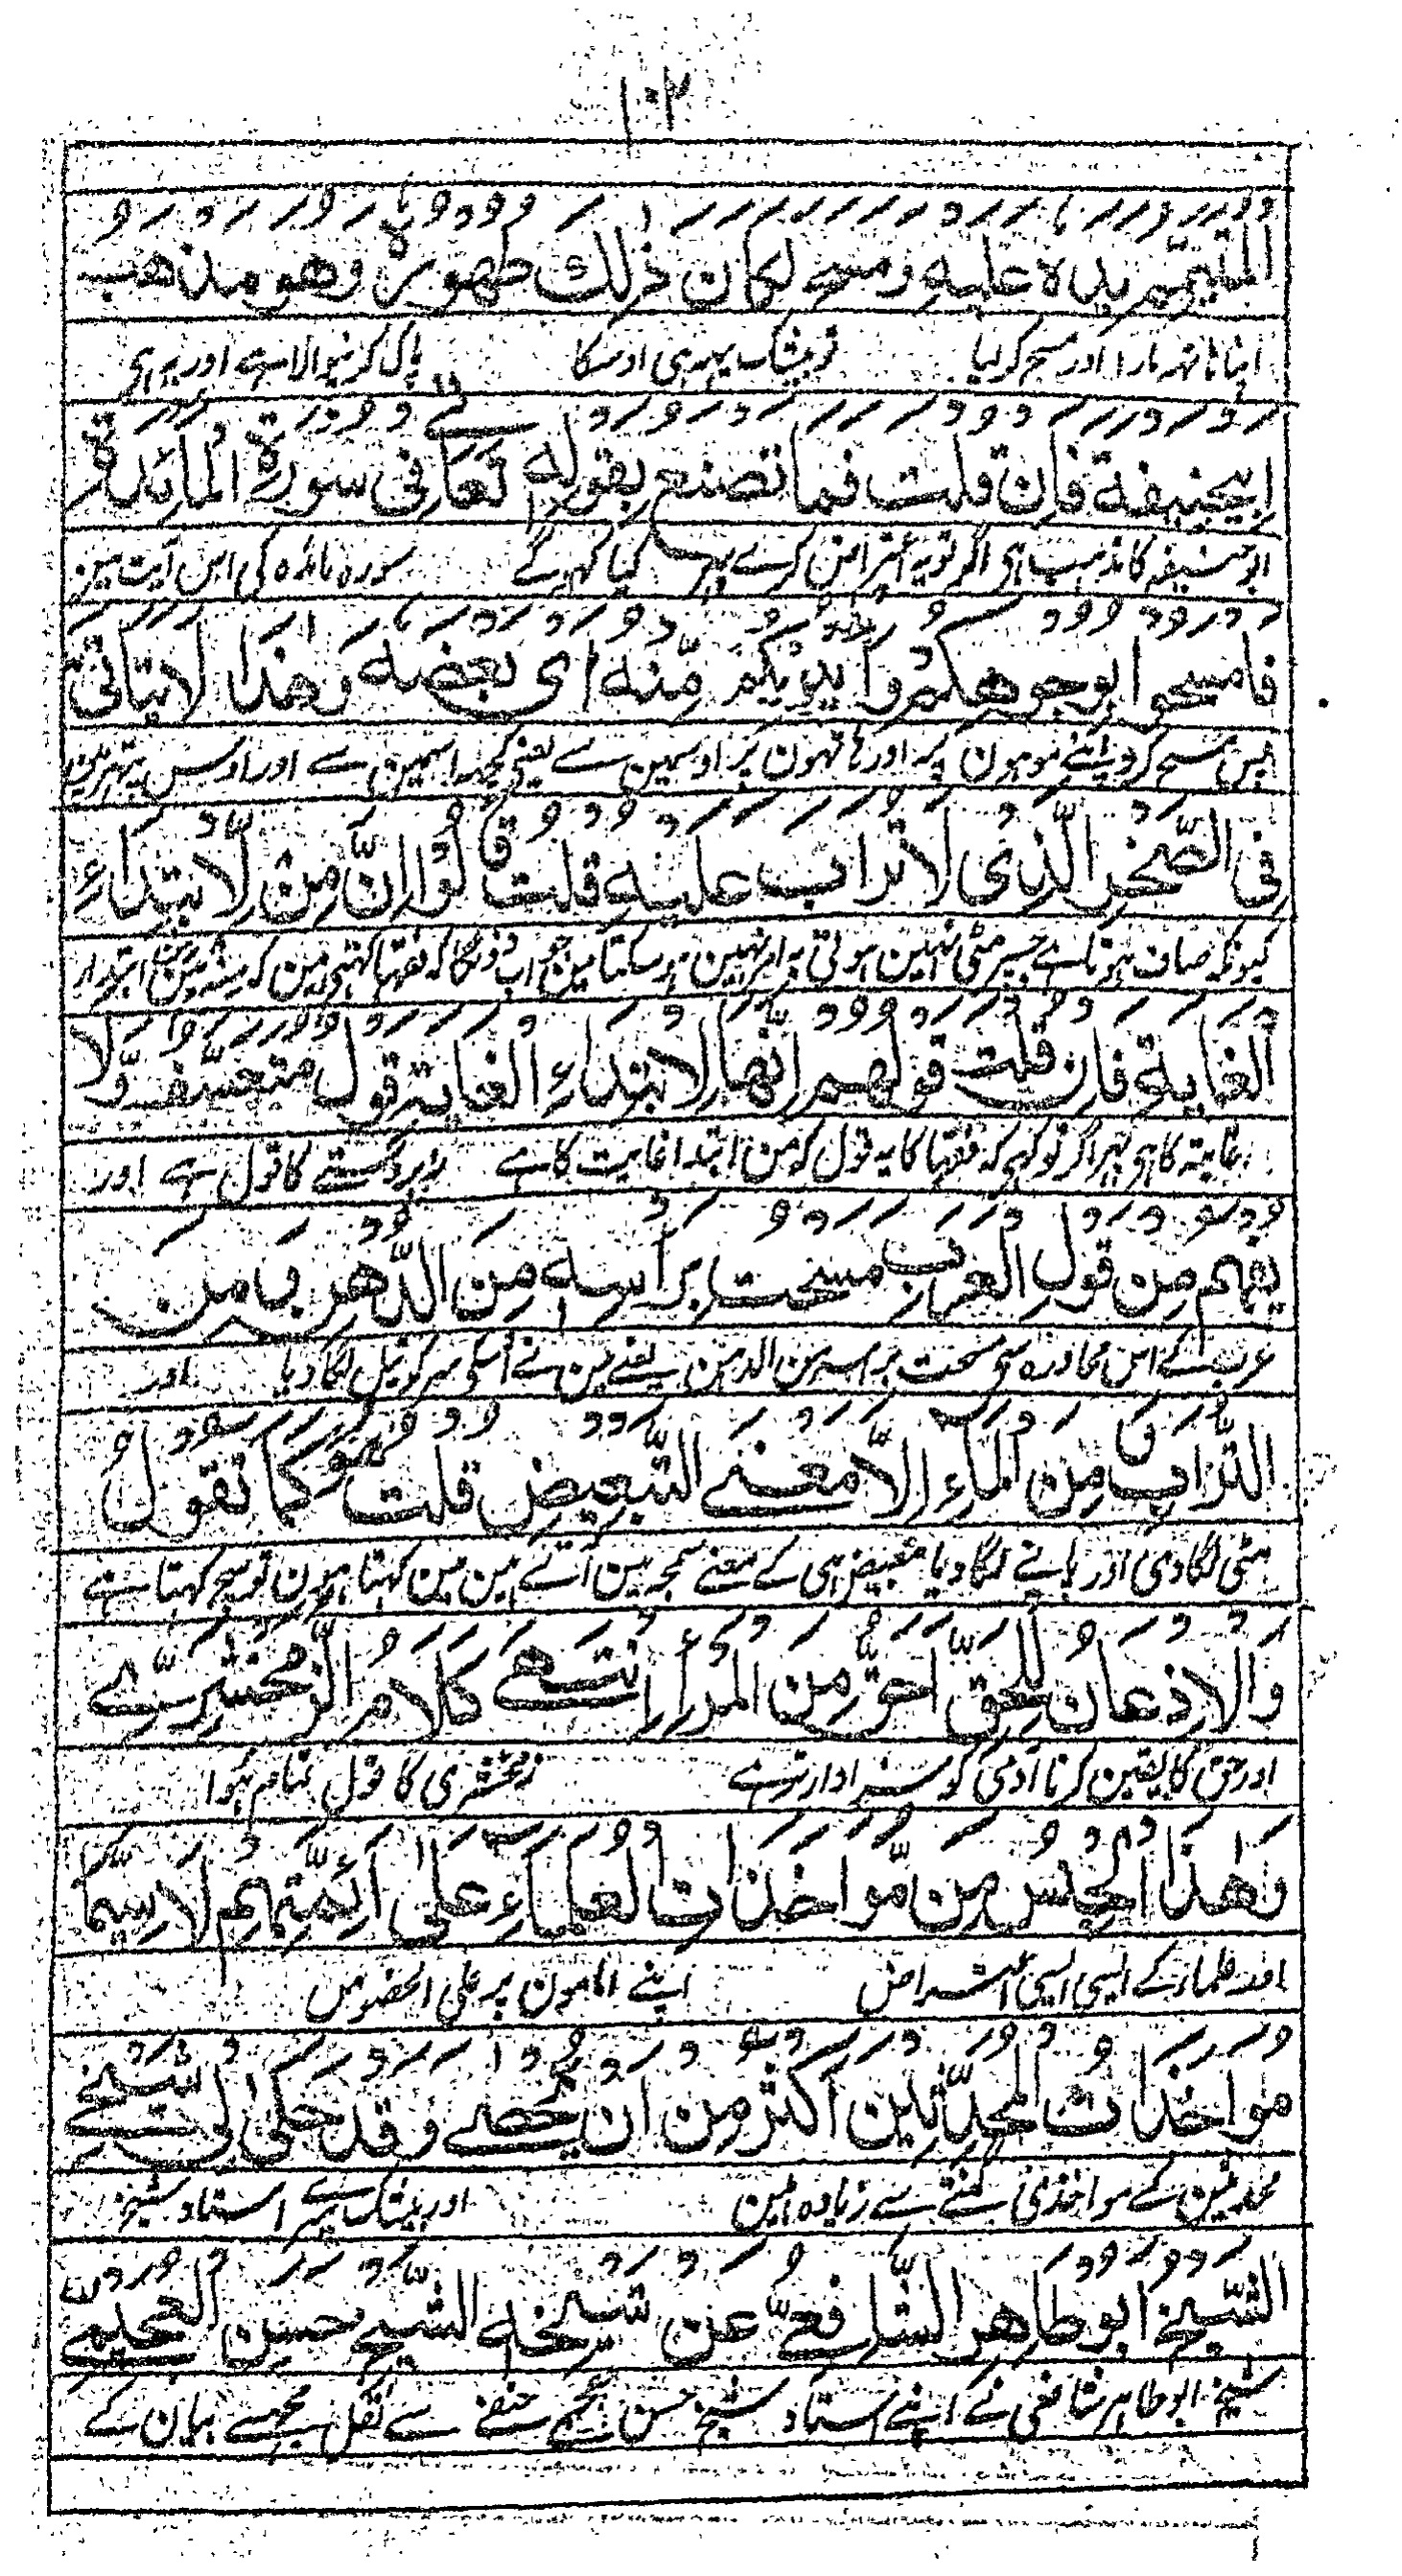 ١٠٢
المُتَيَمِّمُ يَدَهُ عَلَيْهِ وَمَسَحَ لَكَانَ ذٰلِكَ طَهُورَهُ وَهُوَ مَذْهَبُ
اپنا ہاتہہ مارا اور مسح کرلیا تو بیشک یہہ ہی اوسکا پاک کرنیوالا ہے اور یہ ہی
اَبِيْحَنِيْفَةَ فَاِنْ قُلْتَ فَمَا تَصْنَعُ بِقَوْلِهِ تَعَالٰى فِى سُوْرَةِ الْمَائِدَةِ
ابو حنیفہ کا مذہب ہی اگر تو یہ اعتراض کرے پہر کیا کہو گے سورہ مائدہ کی اس آیت مین
فَامْسَحُوْا بِوُجُوْهِكُمْ وَاَيْدِيْكُمْ مِّنْهُ اَىْ بَعْضِهِ وَهٰذَا لَا يَتَاَتّٰى
پس مسح کرو اپنے مونہون پر اور ہاتہون پر اوسمین سے یعنی کچہہ اسمین سے اور اوس پتہر مین
فِى الصَّخْرِ الَّذِىْ لَا تُرَابَ عَلَيْهِ قُلْتُ قَالُوْا اِنَّ مِنْ لِاِبْتِدَاءِ
کیونکہ صاف ہوتا ہے جسپر مٹی نہین ہوتی یہ امر نہین ہو سکتا مین جواب دونگا کہ فقہا کہتے ہین کہ منہ مین من ابتداء
الْغَايَةِ فَاِنْ قُلْتَ قَوْلُهُمْ اِنَّهَا لِابْتِدَاءِ الْغَايَةِ قَوْلٌ مُتَعَسِّفٌ وَّلَا
غایتہ کا ہی پہر اگر تو کہی کہ فقہا کا یہ قول کہ من ابتداء غایت کا ہے زبردستے کا قول ہے اور
يُفْهَمُ مِنْ قَوْلِ الْعَرَبِ مَسَحْتُ بِرَأْسِهِ مِنَ الدُّهْنِ وَ مِنَ
عرب کے اس محاورہ سے مسحت براسہ من الدہن یعنے مین نے اسکی سر کو تیل لگا دیا اور
التُّرَابِ وَ مِنَ الْمَاءِ اِلَّا مَعْنَى التَّبْعِيْضِ قُلْتُ هُوَ كَمَا تَقُوْلُ
مٹی لگادی اور پانے لگا دیا تبعیض ہی کے معنے سمجہ مین آتے ہین مین کہتا ہون تو سچ کہتا ہے
وَالْاِذْعَانُ لِلْحَقِّ اَحَقُّ مِنَ الْمِرَاءِ اِنْتَهٰى كَلَامُ الزَّمَخْشَرِىِّ
اور حق کا یقین کرنا آدمی کو سزاوار تر ہے زمخشری کا قول تمام ہوا
وَهٰذَا الْجِنْسُ مِنْ مُّوَاخَذَاتِ الْعُلَمَاءِ عَلٰى اَئِمَّتِهِمْ لَا سِيَّمَا
اور علماء کے ایسی ایسی اعتراض اپنے امامون پر علی الخصوص
مُوَاخَذَاتُ الْمُحَدِّثِيْنَ اَكْثَرُ مِنْ اَنْ يُّحْصٰى وَقَدْ حَكٰى لِىْ شَيْخِى
محدثین کے مواخذی گننے سے زیادہ ہین اور بیشک میرے استاد شیخ
الشَّيْخُ اَبُوْ طَاهِرِ الشَّافِعِىُّ عَنْ شَيْخِهِ الشَّيْخِ حَسَنِ الْعُجَيْمِىِّ
شیخ ابو طاہر شافعی نے اپنے استاد شیخ حسن عجیمی حنفے سے نقل مجہسے بیان کے